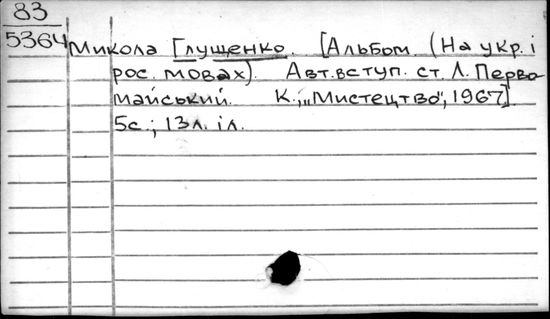 83
5364
Микола Глущенко. [Альбом (На укр. і
рос. мовах). Авт. вступ. ст. Л. Перво
майський. К., „Мистецтво", 1967]
5с.; 13л. іл.